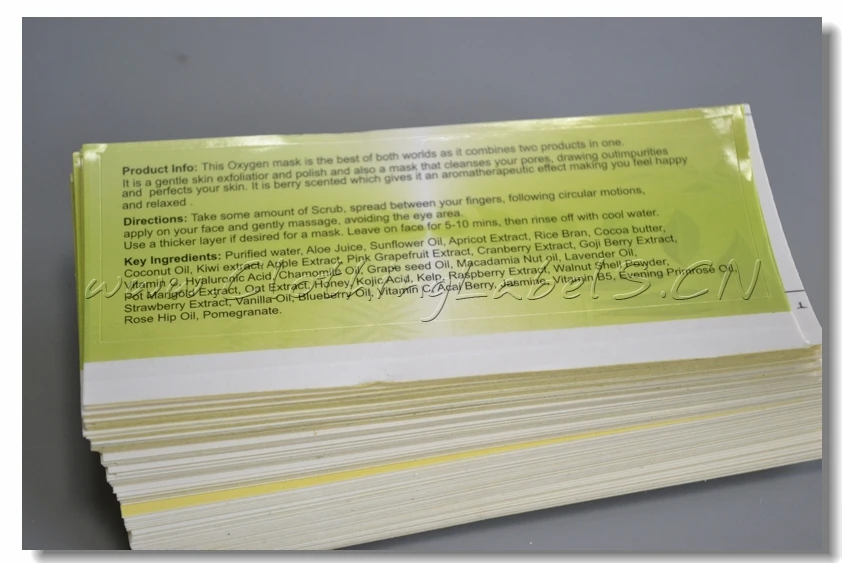 Product Info: This Oxygen mask is the best of both worlds as it combines two products in one.
It is a gentle skin exfoliatior and polish and also a mask that cleanses your pores, drawing outimpurities
and perfects your skin. It is berry scented which gives it an aromatherapeutic effect making you feel happy
and relaxed .
Directions: Take some amount of Scrub, spread between your fingers, following circular motions,
apply on your face and gently massage, avoiding the eye area.
Use a thicker layer if desired for a mask. Leave on face for 5-10 mins, then rinse off with cool water.
Key Ingredients: Purified water, Aloe Juice, Sunflower Oil, Apricot Extract, Rice Bran, Cocoa butter,
Coconut Oil, Kiwi extract, Apple Extract, Pink Grapefruit Extract, Cranberry Extract, Goji Berry Extract,
Vitamin Hyalurconic Acid, Chamomile Oil, Grape seed Oil, Macadamia Nut oil, Lavender Oil,
Pot Marigold Extract, Oat Extract, Honey, Kojic Acid, Kelp, Raspberry Extract, Walnut Shell Powder,
Strawberry Extract, Vanilla Oil, Blueberry Oil, Vitamin C, Acai Berry, Jasmine, Vitamin B5, Evening Primrose Oil,
Rose Hip Oil, Pomegranate.